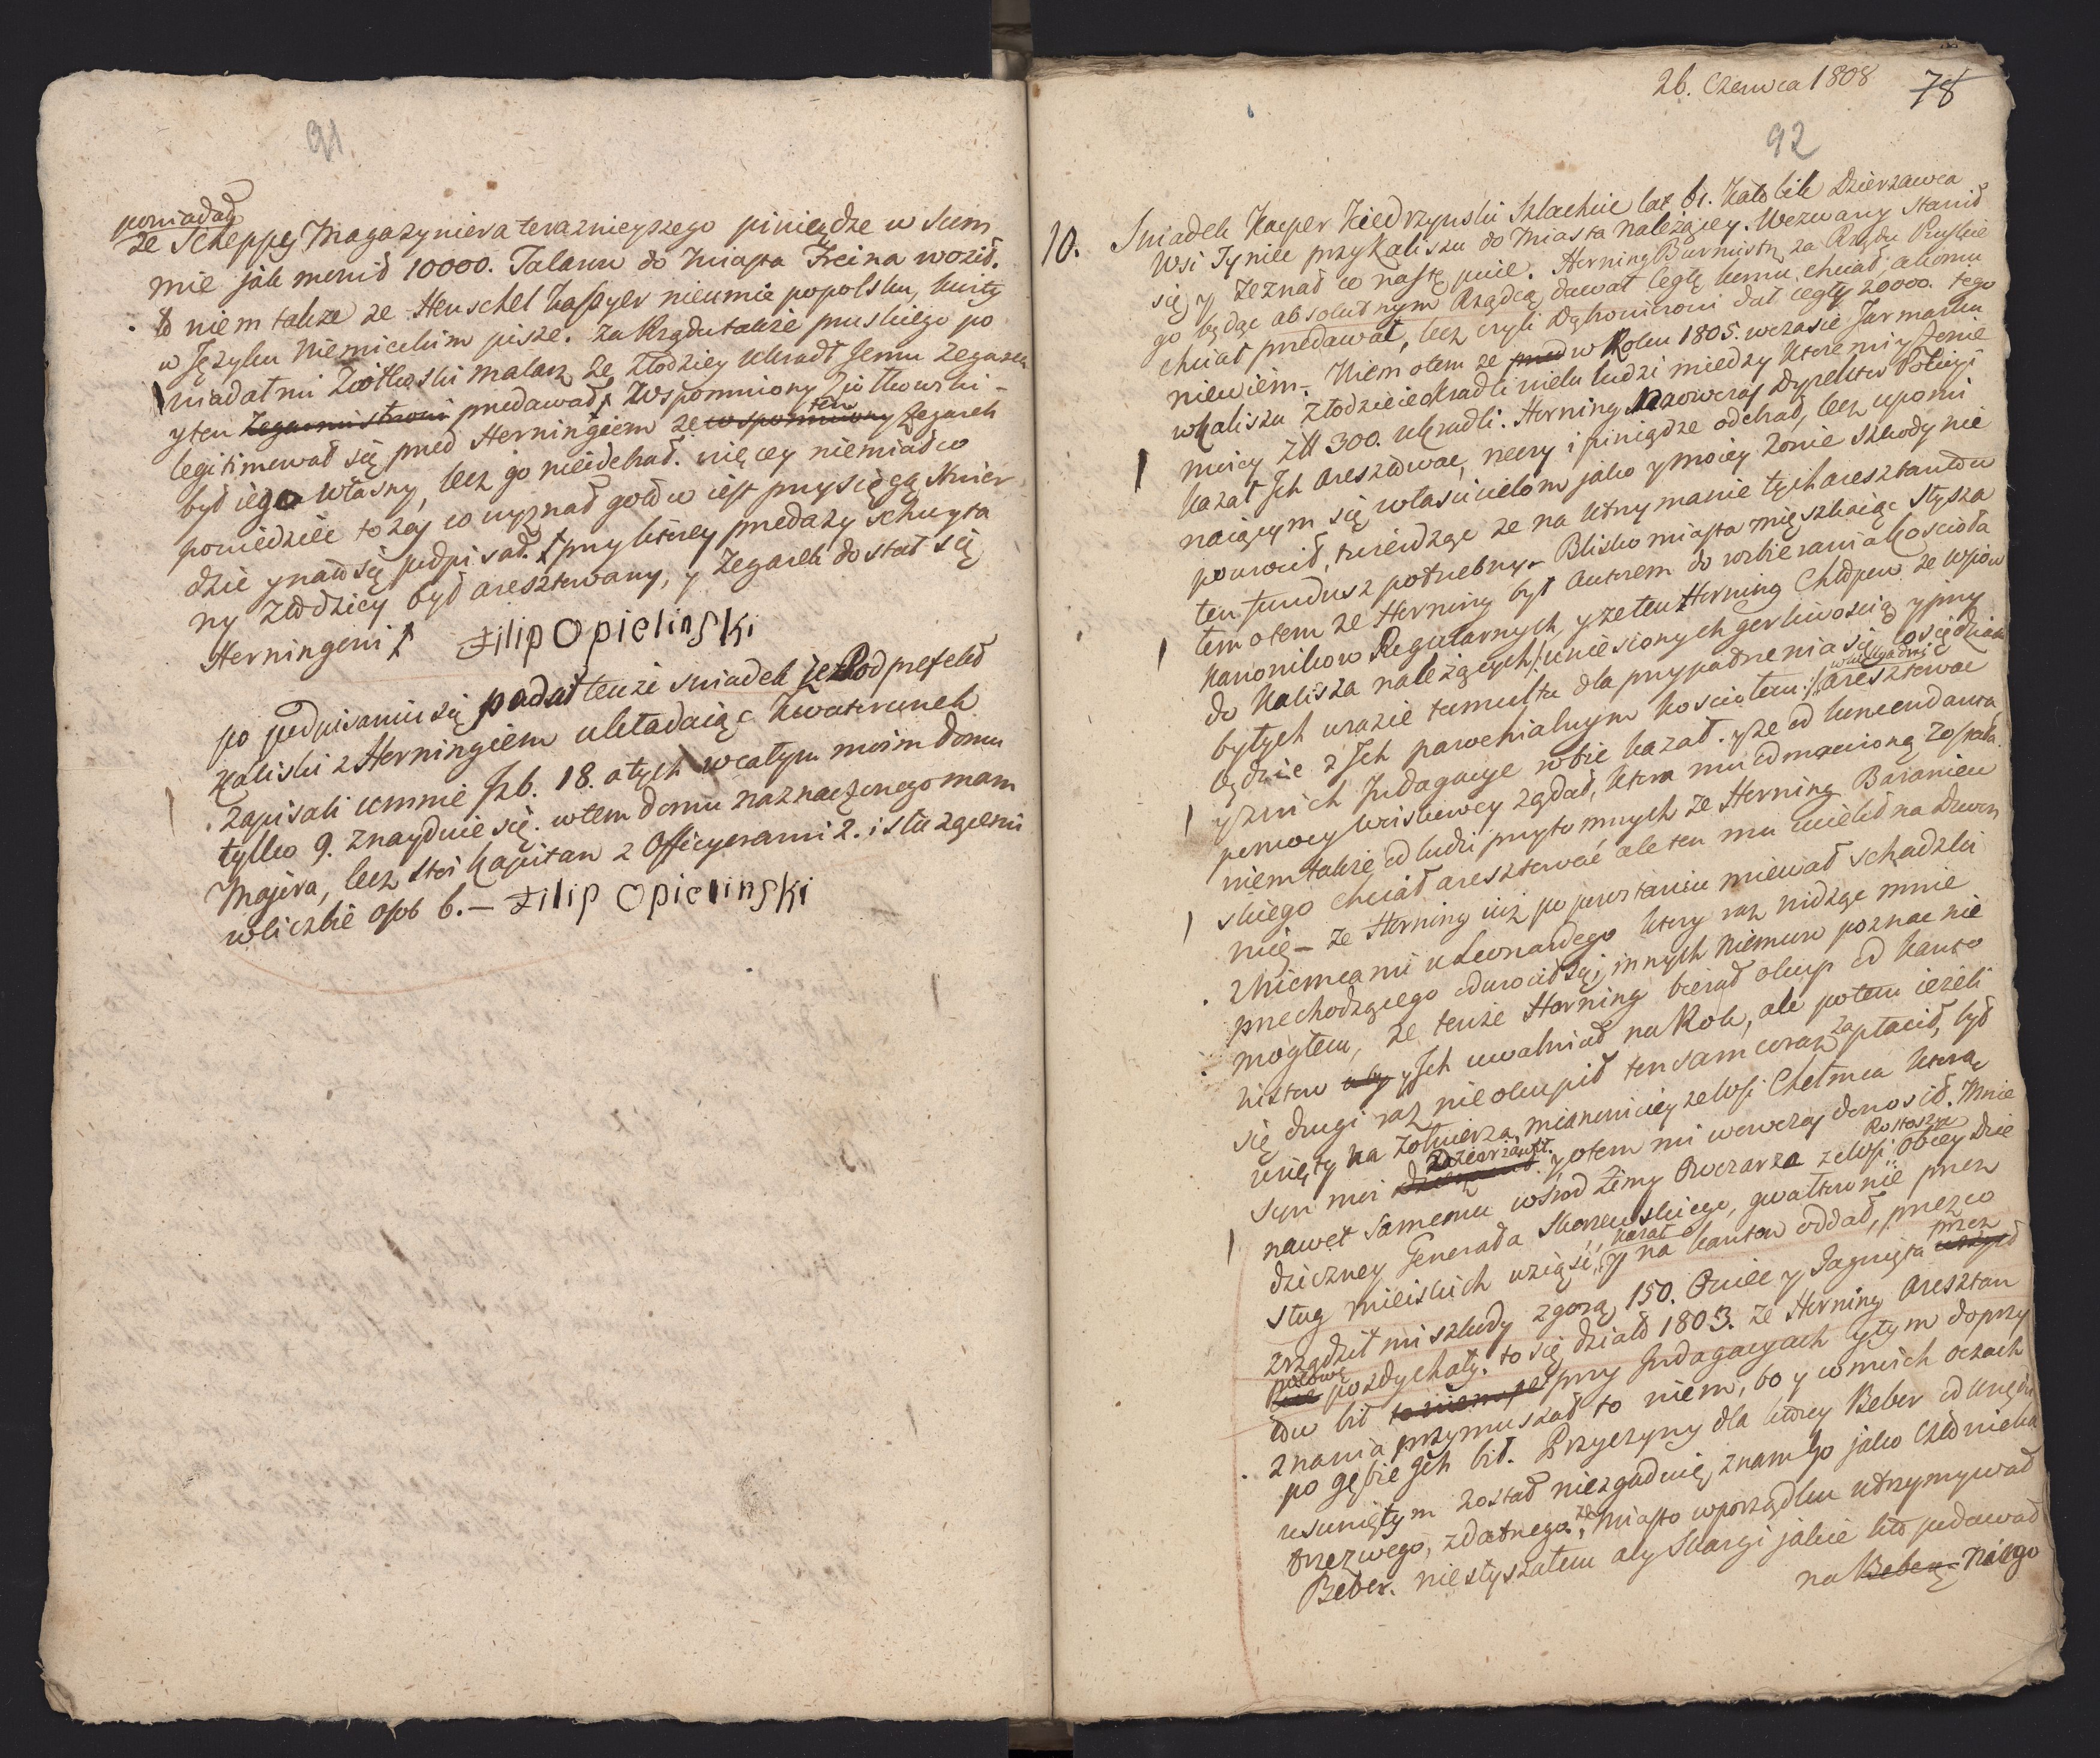 91.
poniadał
że Scheppe Magazyniera teraznieyszego pieniędze w Sum
mie jak menił 10000. Talarow do Miasta Freina woził.
to niem także ze Henschel Kassyer nieumie popolsku, kurty
w Języku Niemieckim pisze. Za Rządu także pruskiego po
niadał mi Ziołkoski malarz Ze Złodziey ukradł Jemu Zegarek
y ten Zegarmistrzowi predawał, Wspomniony Ziołkowski -
legitimował się pred Herningiem ze wspomniony ten Zegarek
był iego własny, lecz go nieodebrał. więcey niemiał co
poniedziec to zaś co wyznał gotow iest przysięgą stwier
dzic y na to się podpisał. przy ktorey predazy schwyta
ny Złodziey był aresztowany, y Zegarek dostał się
Herningowi
Filip Opielinski
po podpisaniu się podał tenże swiadek że Podprefekt
Kaliski z Herningiem układaiąc kwaterunek
zapisali u mnie Jzb. 18. a tych w całym moim domu
tylko 9. znayduie się. w tem domu naznaczonego mam
Majora, lecz stoi Kapitan z Officyerami 2. i sługami
w liczbie osob 6. — Filip Opielinski
26. Czerwca 1808
78
92
10. Swiadek Kacper Kiedrzynski Szlachcic lat 61. Katolik Dzierzawca
Wsi Tyniec przy Kaliszu do Miasta należącey. Wezwany stawił
się y zeznał co następuie. Herning Burmistrz za Rządu Pruskie
go będąc absolutnym Rządcą dawał cegłę komu chciał, a komu
chciał predawał, lecz czyli Dąbrowskiemu dał cegły 20000. tego
niewiem. Wiem o tem ze pred w Roku 1805. w czasie Jarmarku
w Kaliszu Złodzieie okradli wielu ludzi miedzy ktoremi y Zonie
moiey Zł 300. ukradli. Herning naowczas Dyrektor Policyi
kazał Jch aresztować, rzeczy i pieniądze odebrał, lecz upomi
naiącym się włascicielom jako y moiey Zonie szkody nie
powrocił, twierdząc ze na utrzymanie tych aresztantow
ten fundusz potrzebny. Blisko miasta mięszkaiąc słysza
łem o tem ze Herning był autorem do rozbierania Koscioła
Kanonikow Regularnych, y ze ten Herning Chłopow ze wsiow
do Kalisza należących /: uniesionych gorliwoscią y przy
byłych w razie tumultu dla przypatrzenia się co się dziać
będzie z Jch parochialnym Kosciołem:/ aresztować
y z nich Jndagacye robić kazał. y ze od Komendanta
pomocy woiskowey żądał, ktora mu odmowioną została.
wiem także od ludzi przytomnych ze Herning Baranien
skiego chciał aresztować ale ten mu uciekł na dzwon
nię — ze Herning iuz po powstaniu miewał schadzki
z Niemcami u Leonardego ktory raz widząc mnie
przechodzącego odwrocił się, innych Niemcow poznac nie
mogłem, ze tenże Herning bierał okup od kanto
nistow aby y Jch uwalniał na Rok, ale potem ieżeli
się drugi raz nie okupił ten sam co raz zapłacił, był
wzięty na Żołnierza, mianowiciey ze Wsi Chełmca ktorą
syn moi Dzierzawił. y o tem mi wowczas donosił. Mnie
nawet samemu wsrod Zimy Owczarza z Wsi Rostoszyc Obiey Dzie
dziczney Generała Skorzewskiego, gwałtownie przez
sług mieiskich wziąśc kazał y na kanton oddał, przez co
zrządził mi szkody zgorą 150. Owiec y Jagnięta przez
połowę pozdychały. to się działo 1803. ze Herning Aresztan
tow bił to wiem ze przy Jndagacyach y tym do przy
znania przymuszał to niem, bo y w moich oczach
po gębie Jch bił. Przyczyny dla ktorey Beber od Urzędu
usuniętym został niezgadnię, znam go jako człowieka
trzezwego, zdatnego, że Miasto w porządku utrzymywał
Beber. niesłyszałem aby Skargi jakie kto podawał
na Bebera. Naiego